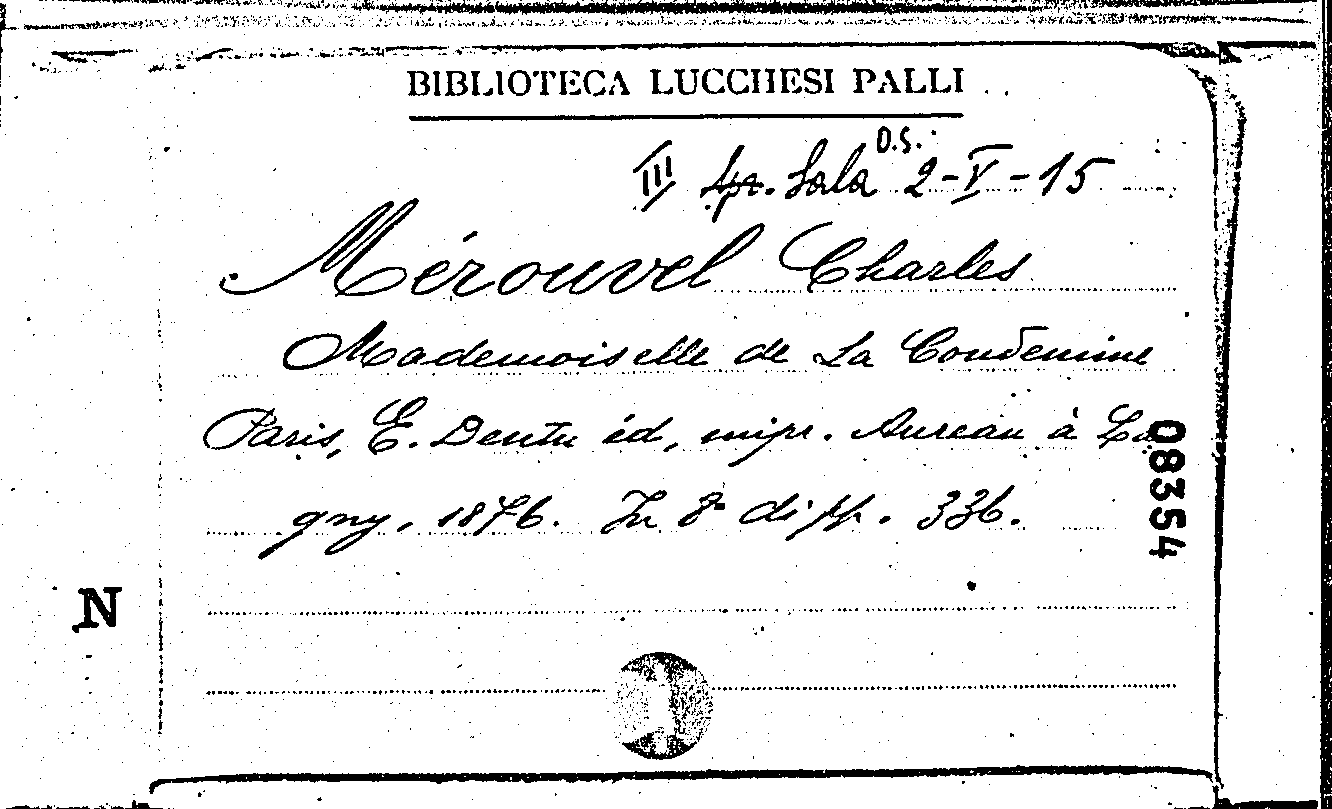 BIBLIOTECA LUCCHESI PALLI
D.S.
III Sala 2-V-15
Mérouvel Charles
Mademoiselle de La Condemine
Paris, E. Dentu éd, impr. Aureau à La
gny, 1876. In 8° di pp. 336.
08354
N